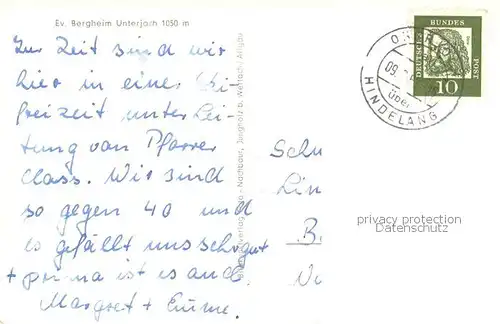 Ev. Bergheim Unterjoch 1050 m
Zur Zeit sind wir
hier in einer Ski-
freizeit unter Lei-
tung von Pfarrer
Class. Wir sind
so gegen 40 und
es gefällt uns sehr gut
+ prima ist es auch.
Margret + Emme.
Nachbaur, Jungholz b. Wertach/Allgäu
Schu
Lin
B.
DEUTSCHE
BUNDES
POST
10
09.
über
HINDELANG
privacy protection
Datenschutz